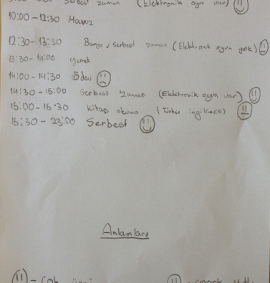 Serbest zaman (Elektronik oyun var)
10:00 - 12:30 Havuz
12:30 - 13:30 Banyo, Serbest zaman (Elektronik oyun yok)
13:30 - 14:00 yemek
14:00 - 14:30 Ödev
14:30 - 15:00 Serbest Zaman (Elektronik oyun var)
15:00 - 15:30 kitap okuma (Türkçe ingilizce)
15:30 - 23:00 Serbest
Anlamları